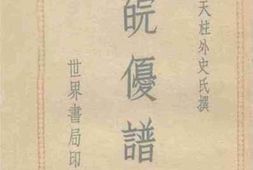 天柱外史氏撰
皖優譜
世界書局印